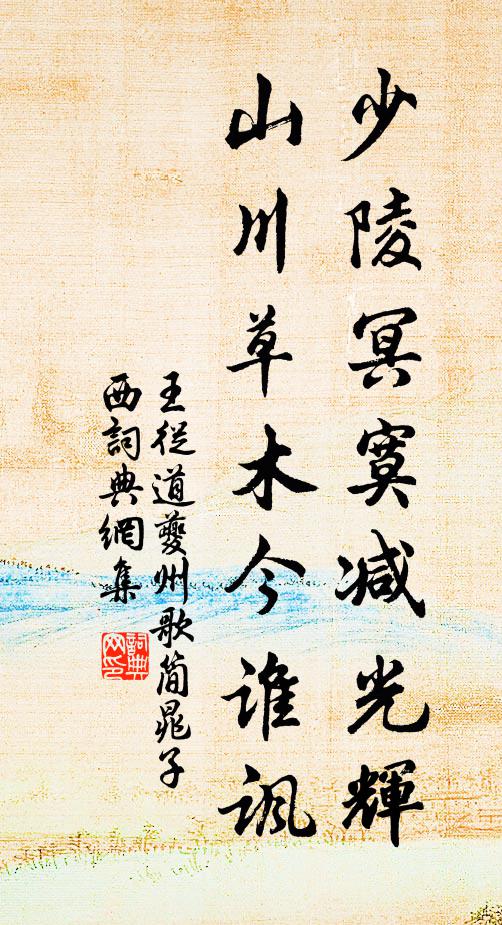 少陵冥寞减光輝
山川草木今谁諷
王從道夔州歌简晁子
西詞典網集
詞典
网印